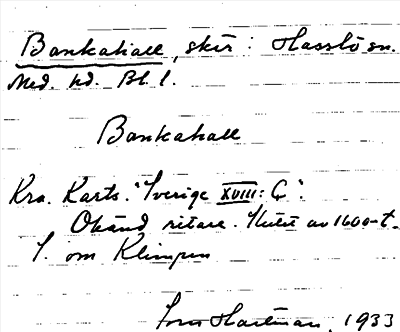 Bankahall, skär: Hasslö sn.
Med. hd. Bl. l.
Bankahall
Kra. Kartv. "Sverige XVIII: C".
Okänd ritare. Slutet av 1600-t.
S. om Klimpen
Hartman, 1933